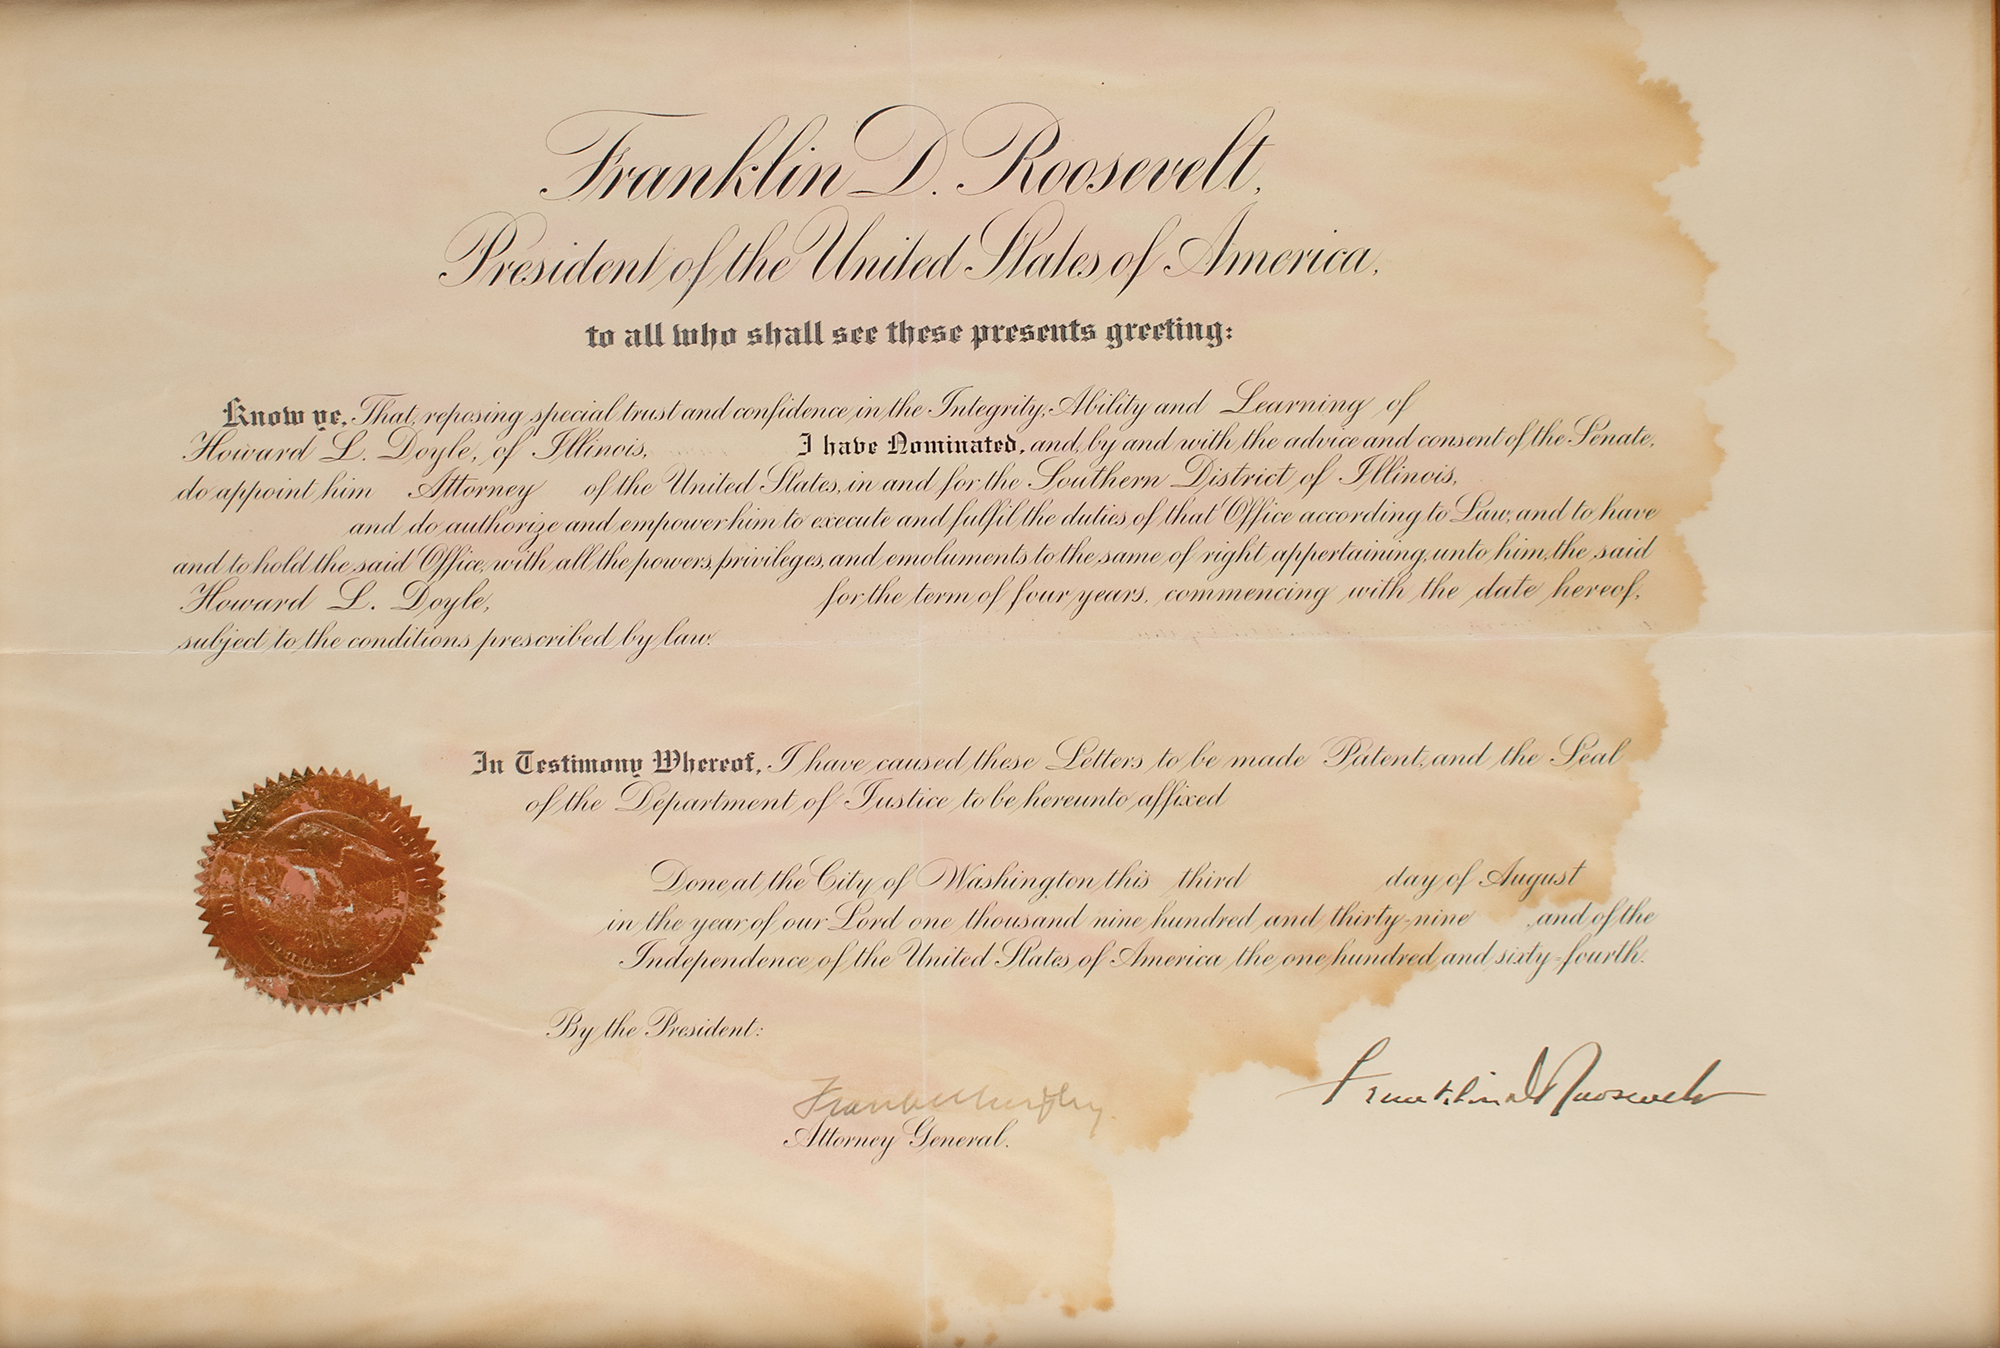 Franklin D. Roosevelt,
President of the United States of America,
to all who shall see these presents greeting:
Know ye, That, reposing special trust and confidence in the Integrity, Ability and Learning of
Howard L. Doyle, of Illinois, I have Nominated, and, by and with the advice and consent of the Senate,
do appoint him Attorney of the United States, in and for the Southern District of Illinois,
and do authorize and empower him to execute and fulfil the duties of that Office according to Law, and to have
and to hold the said Office, with all the powers, privileges, and emoluments to the same of right appertaining, unto him, the said
Howard L. Doyle, for the term of four years, commencing with the date hereof,
subject to the conditions prescribed by law.
In Testimony Whereof, I have caused these Letters to be made Patent, and the Seal
of the Department of Justice to be hereunto affixed
Done at the City of Washington this third day of August
in the year of our Lord one thousand nine hundred and thirty-nine, and of the
Independence of the United States of America the one hundred and sixty-fourth.
By the President:
Franklin D Roosevelt
Frank Murphy
Attorney General.